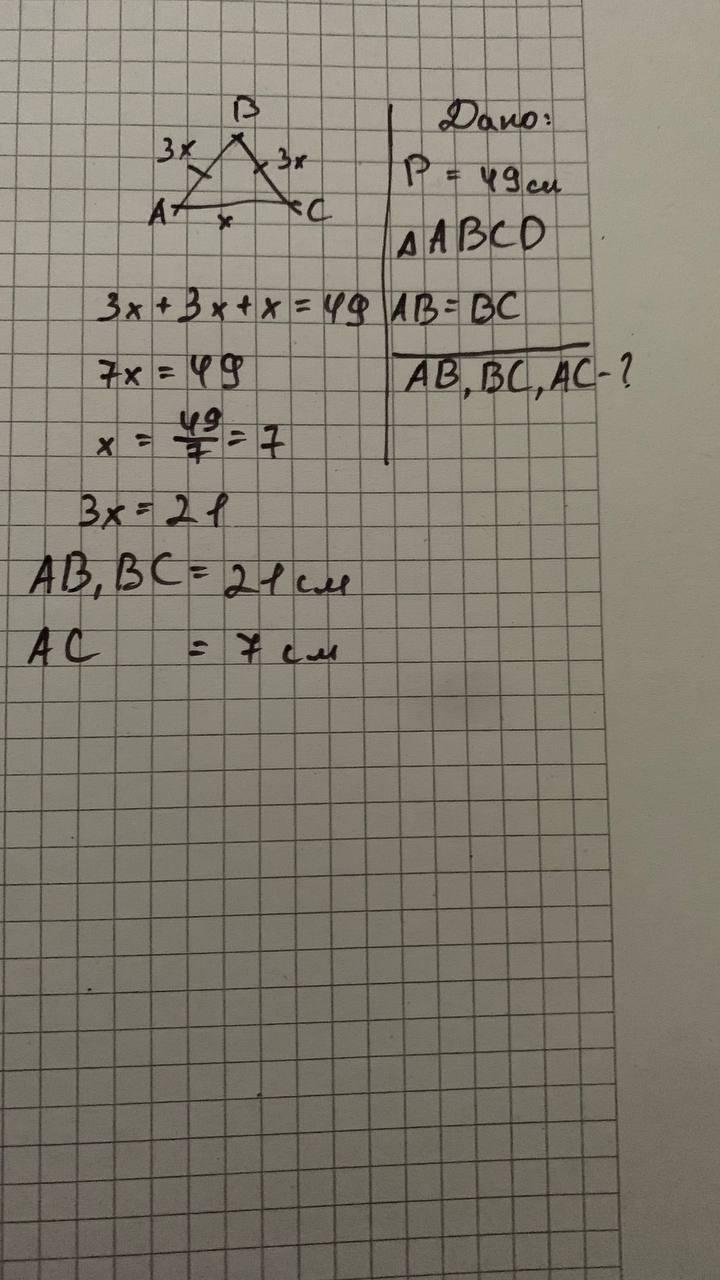 B
3x
3x
A
x
C
3x + 3x + x = 49
7x = 49
x = 49/7 = 7
3x = 21
AB, BC = 21 см
AC = 7 см
Дано:
P = 49 см
△ ABCD
AB = BC
AB, BC, AC - ?